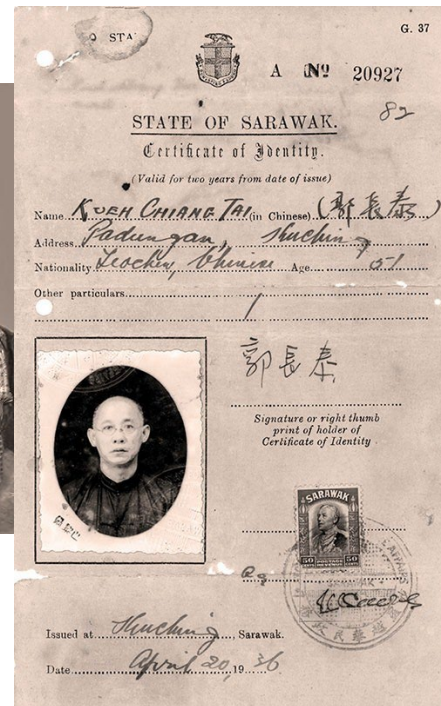 G. 37
A Nº 20927
82
STATE OF SARAWAK.
Certificate of Identity.
(Valid for two years from date of issue)
Name KUEH CHIANG TAI (in Chinese) (郭長泰)
Address Padungan, Kuching
Nationality Teochew, Chinese Age 51
Other particulars
郭長泰
Signature or right thumb
print of holder of
Certificate of Identity
SARAWAK
50 CENTS 50 CENTS
Issued at Kuching, Sarawak.
Date April 20, 1936